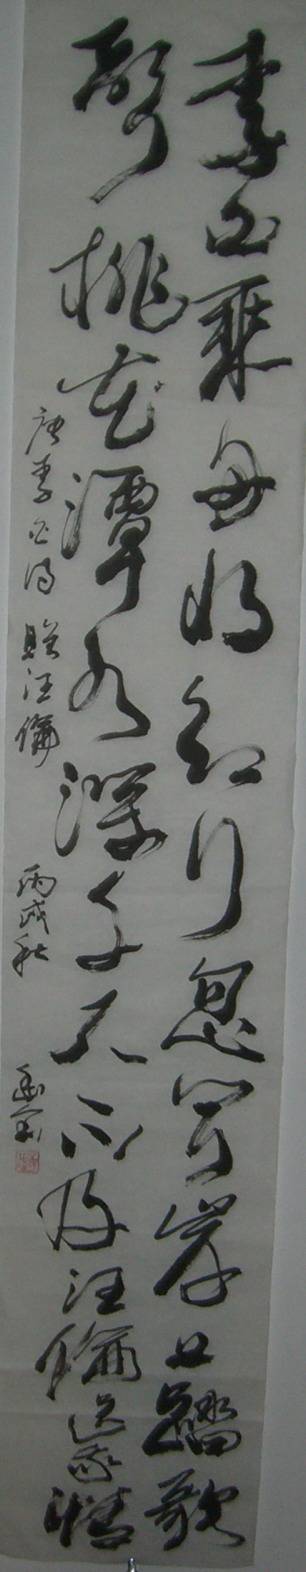 李白乘舟将欲行忽闻岸上踏歌
声桃花潭水深千尺不及汪伦送我情
唐李白诗赠汪伦 丙戌秋